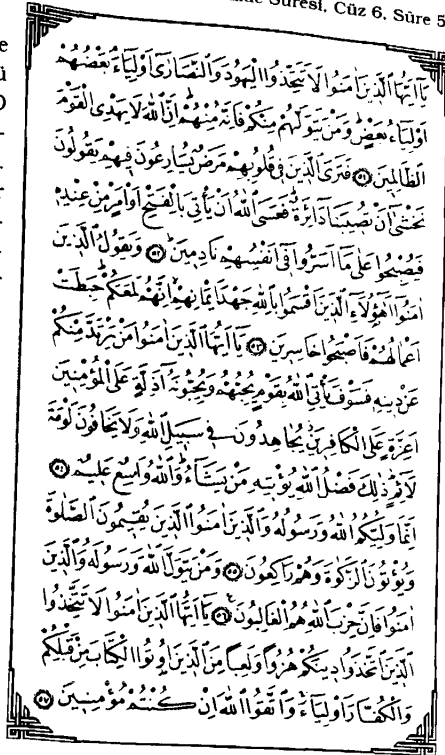 Sûresi, Cüz 6, Sûre 5
يَا اَيُّهَا الَّذِينَ اٰمَنُوا لَا تَتَّخِذُوا الْيَهُودَ وَالنَّصَارٰٓى اَوْلِيَٓاءَ بَعْضُهُمْ
اَوْلِيَٓاءُ بَعْضٍ وَمَنْ يَتَوَلَّهُمْ مِنْكُمْ فَاِنَّهُ مِنْهُمْ اِنَّ اللّٰهَ لَا يَهْدِي الْقَوْمَ
الظَّالِمِينَ ﴿٥١﴾ فَتَرَى الَّذِينَ فِي قُلُوبِهِمْ مَرَضٌ يُسَارِعُونَ فِيهِمْ يَقُولُونَ
نَخْشٰٓى اَنْ تُصِيبَنَا دَٓائِرَةٌ فَعَسَى اللّٰهُ اَنْ يَأْتِيَ بِالْفَتْحِ اَوْ اَمْرٍ مِنْ عِنْدِهِ
فَيُصْبِحُوا عَلٰى مَٓا اَسَرُّوا فِٓي اَنْفُسِهِمْ نَادِمِينَ ﴿٥٢﴾ وَيَقُولُ الَّذِينَ
اٰمَنُٓوا اَهٰٓؤُ۬لَٓاءِ الَّذِينَ اَقْسَمُوا بِاللّٰهِ جَهْدَ اَيْمَانِهِمْ اِنَّهُمْ لَمَعَكُمْ حَبِطَتْ
اَعْمَالُهُمْ فَاَصْبَحُوا خَاسِرِينَ ﴿٥٣﴾ يَٓا اَيُّهَا الَّذِينَ اٰمَنُوا مَنْ يَرْتَدَّ مِنْكُمْ
عَنْ دِينِهِ فَسَوْفَ يَأْتِي اللّٰهُ بِقَوْمٍ يُحِبُّهُمْ وَيُحِبُّونَهُٓ اَذِلَّةٍ عَلَى الْمُؤْمِنِينَ
اَعِزَّةٍ عَلَى الْكَافِرِينَ يُجَاهِدُونَ فِي سَبِيلِ اللّٰهِ وَلَا يَخَافُونَ لَوْمَةَ
لَٓائِمٍ ذٰلِكَ فَضْلُ اللّٰهِ يُؤْتِيهِ مَنْ يَشَٓاءُ وَاللّٰهُ وَاسِعٌ عَلِيمٌ ﴿٥٤﴾
اِنَّمَا وَلِيُّكُمُ اللّٰهُ وَرَسُولُهُ وَالَّذِينَ اٰمَنُوا الَّذِينَ يُقِيمُونَ الصَّلٰوةَ
وَيُؤْتُونَ الزَّكٰوةَ وَهُمْ رَاكِعُونَ ﴿٥٥﴾ وَمَنْ يَتَوَلَّ اللّٰهَ وَرَسُولَهُ وَالَّذِينَ
اٰمَنُوا فَاِنَّ حِزْبَ اللّٰهِ هُمُ الْغَالِبُونَ ﴿٥٦﴾ يَٓا اَيُّهَا الَّذِينَ اٰمَنُوا لَا تَتَّخِذُوا
الَّذِينَ اتَّخَذُوا دِينَكُمْ هُزُوًا وَلَعِبًا مِنَ الَّذِينَ اُو۫تُوا الْكِتَابَ مِنْ قَبْلِكُمْ
وَالْكُفَّارَ اَوْلِيَٓاءَ وَاتَّقُوا اللّٰهَ اِنْ كُنْتُمْ مُؤْمِنِينَ ﴿٥٧﴾